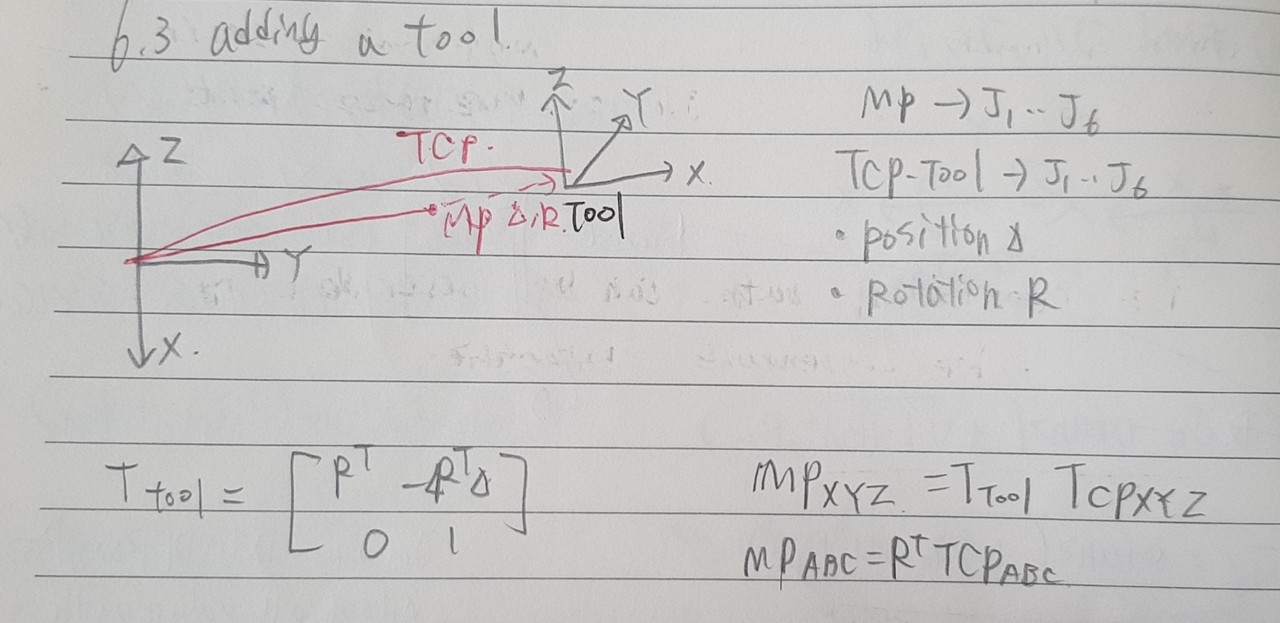 6.3 adding a tool
Z
Y
X.
TCP.
Mp Δ,R. Tool
Z
Y
X.
Mp → J₁ ‥ J₆
TCP-Tool → J₁ ‥ J₆
• position Δ
• Rotation R
T tool = [ Rᵀ -RᵀΔ
0 1 ]
MP XYZ = T Tool TCP XYZ
MP ABC = Rᵀ TCP ABC